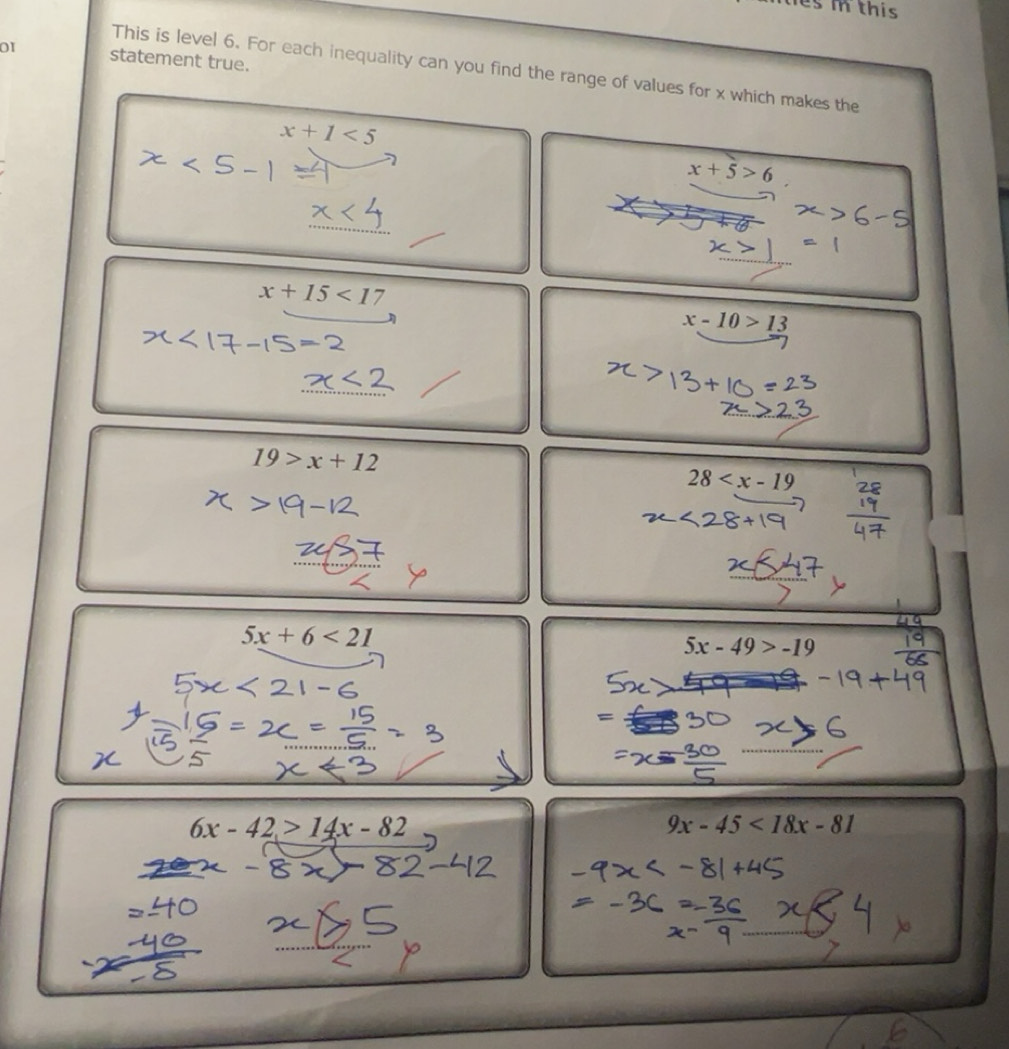 in this
or
This is level 6. For each inequality can you find the range of values for x which makes the
statement true.
x + 1 < 5
x < 5 - 1 = 4
x < 4
x + 5 > 6
x > 6 - 5
x > 1 = 1
x + 15 < 17
x < 17 - 15 = 2
x < 2
x - 10 > 13
x > 13 + 10 = 23
x > 23
19 > x + 12
x > 19 - 12
x > 7
<
28 < x - 19
28
19
47
x < 28 + 19
x < 47
>
5x + 6 < 21
5x < 21 - 6
15 = x = 15/5 = 3
x < 3
5x - 49 > -19
49
19
5x > -19 + 49
= 30 x > 6
= x = 30/5
6x - 42 > 14x - 82
x - 8x > - 82 - 42
= -40
x > 5
<
-40
-8
9x - 45 < 18x - 81
-9x < -81 + 45
= -36 = -36/9 x < 4
>
6